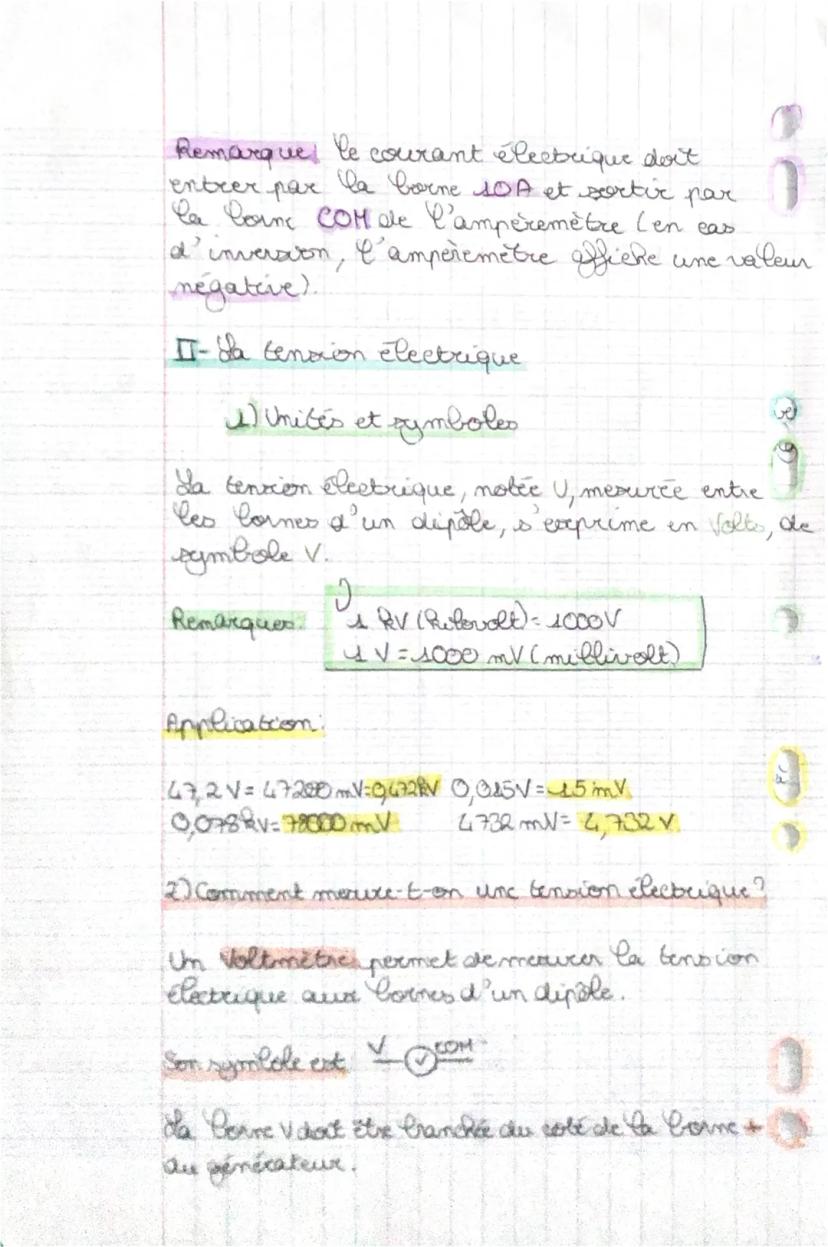 Remarque: le courant électrique doit
entrer par la borne 10A et sortir par
la borne COM de l'ampèremètre (en cas
d'inversion, l'ampèremètre affiche une valeur
négative).
II- La tension électrique
1) Unités et symboles
La tension électrique, notée U, mesurée entre
les bornes d'un dipôle, s'exprime en Volts, de
symbole V.
Remarques:
1 kV (kilovolt) = 1000V
1 V = 1000 mV (millivolt)
Application:
47,2 V = 47200 mV = 0,472kV 0,015V = 15 mV
0,078kV = 78000 mV 4732 mV = 4,732 V
2) Comment mesure-t-on une tension électrique?
Un Voltmètre permet de mesurer la tension
électrique aux bornes d'un dipôle.
Son symbole est V V COM
La borne V doit être branchée du coté de la borne +
du générateur.